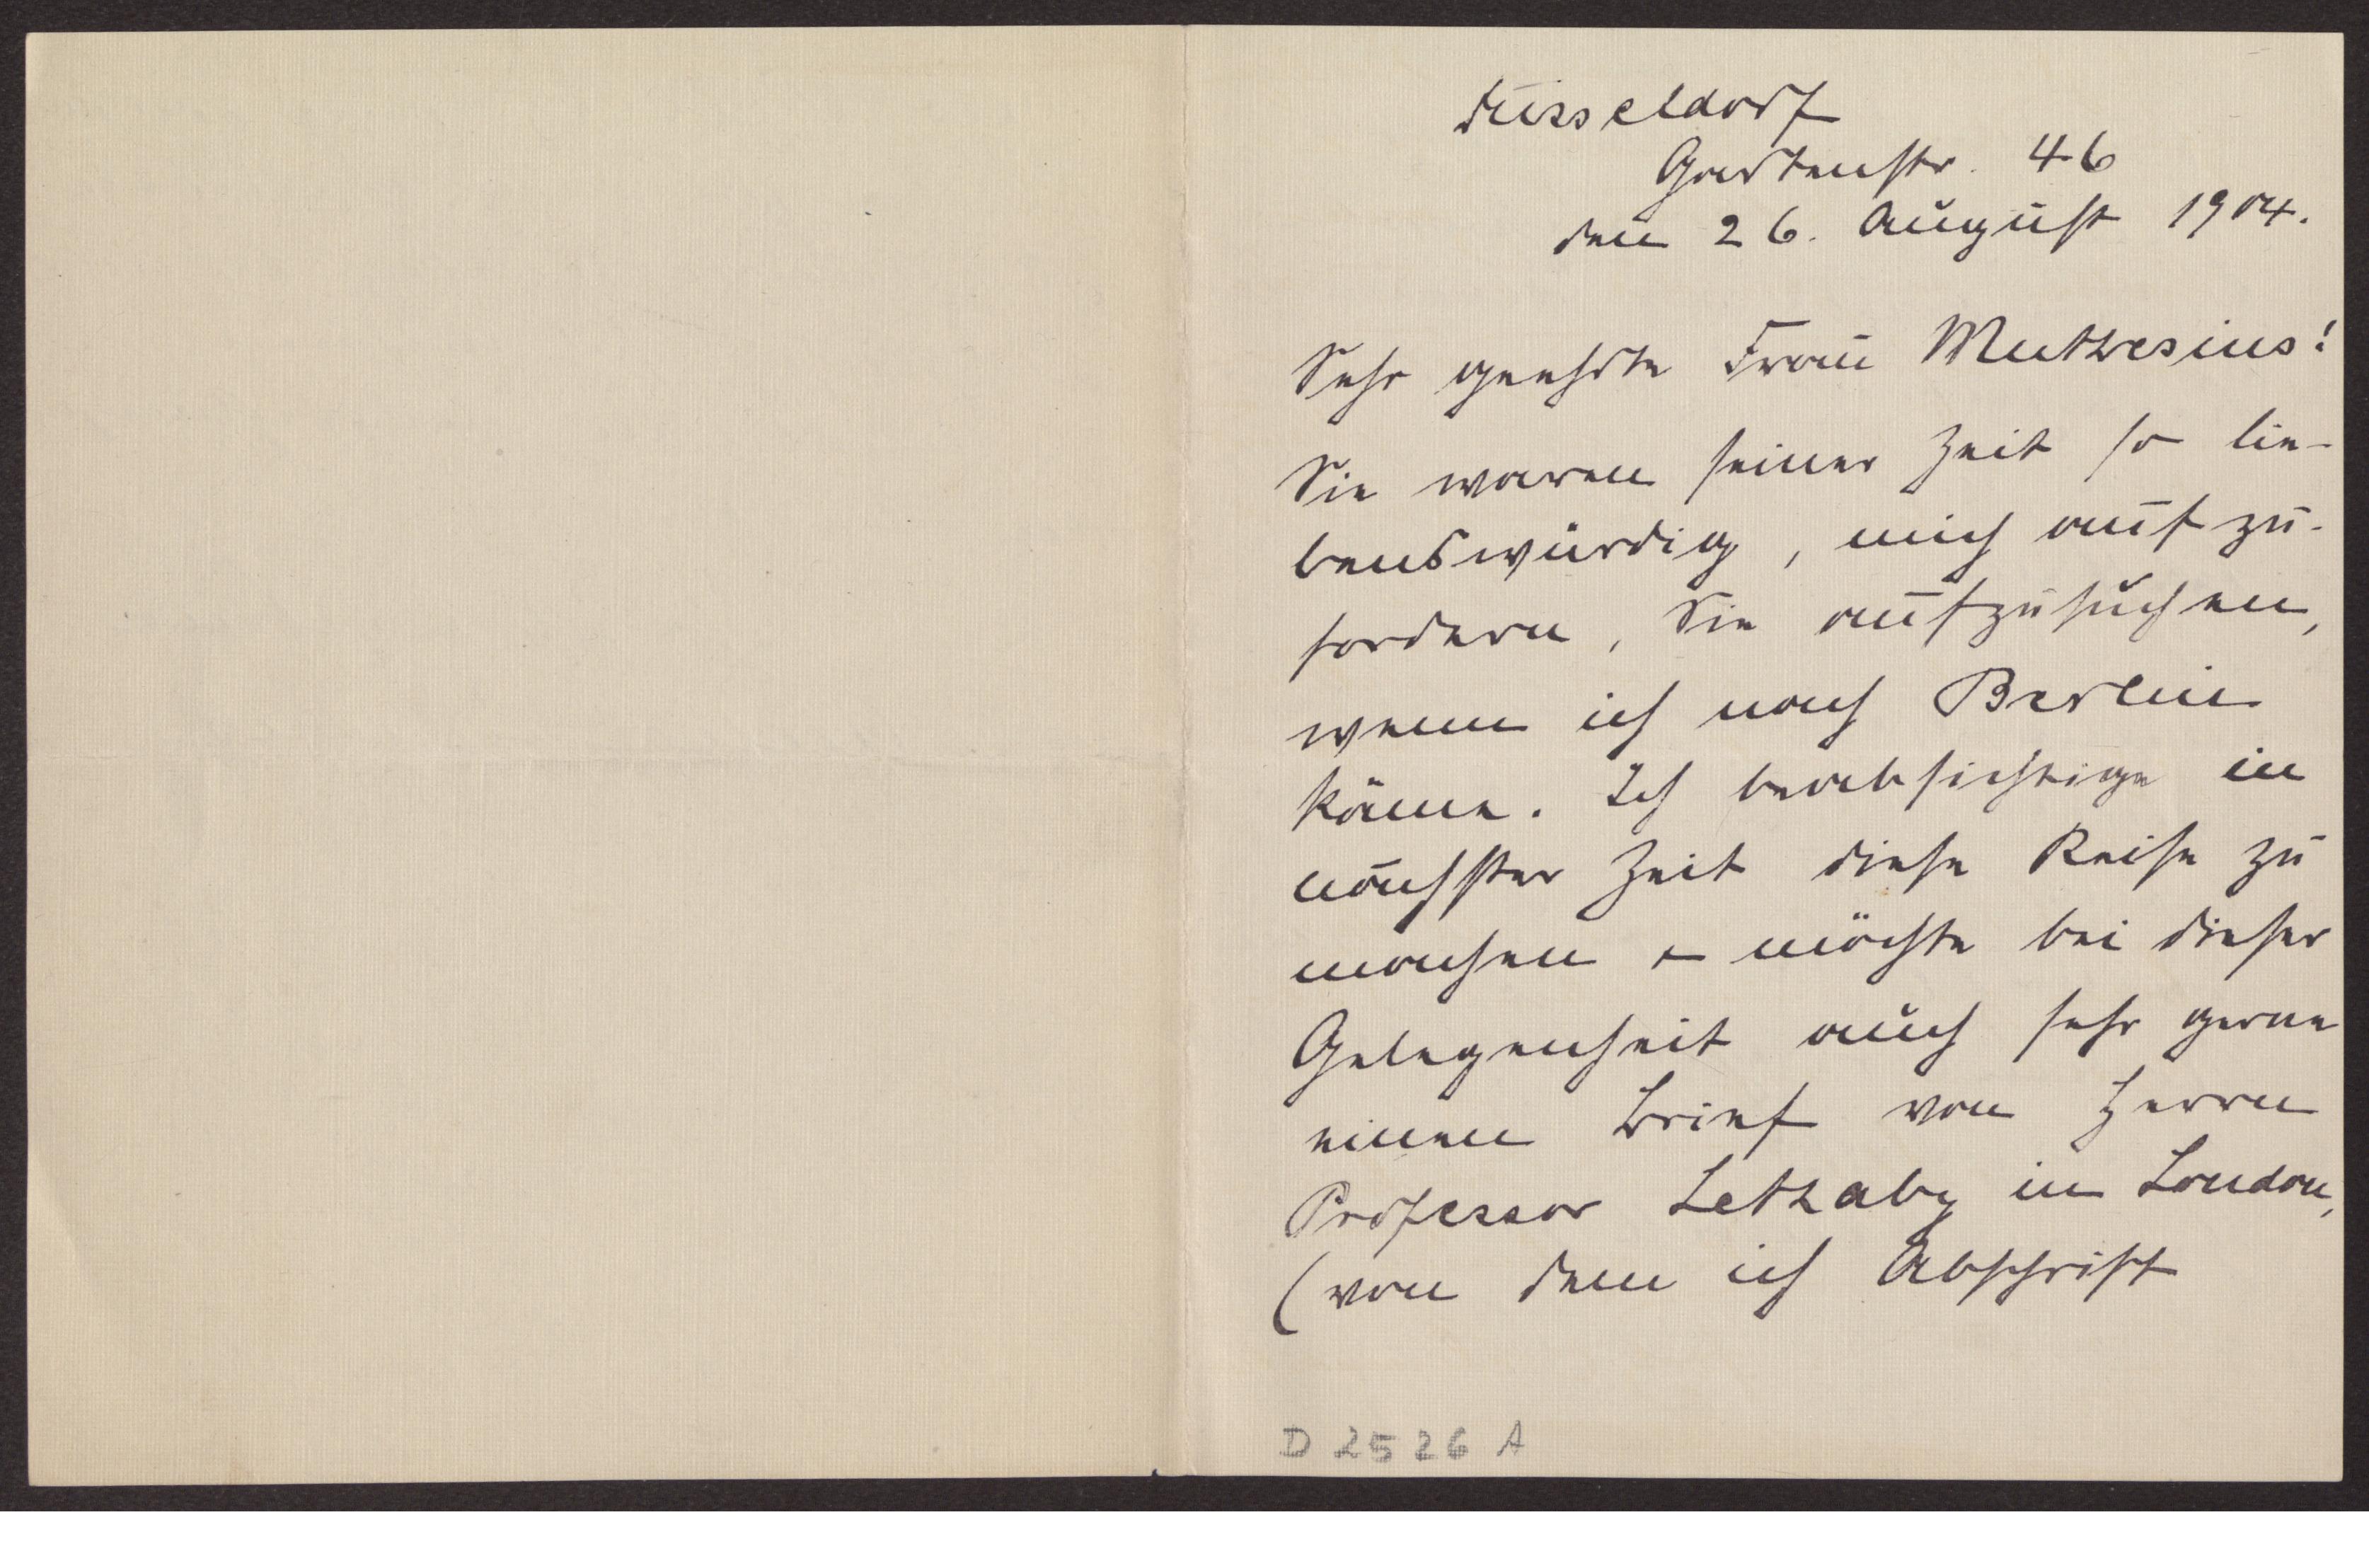 Düsseldorf
Gartenstr. 46
den 26. August 1904.
Sehr geehrte Frau Muthesius!
Sie waren seiner Zeit so lie-
benswürdig, mich aufzu-
fordern, Sie aufzusuchen,
wenn ich nach Berlin
käme. Ich beabsichtige in
nächster Zeit diese Reise zu
machen & möchte bei dieser
Gelegenheit auch sehr gerne
einen Brief von Herrn
Professor Lethaby in London,
(von dem ich Abschrift
D 2526 A